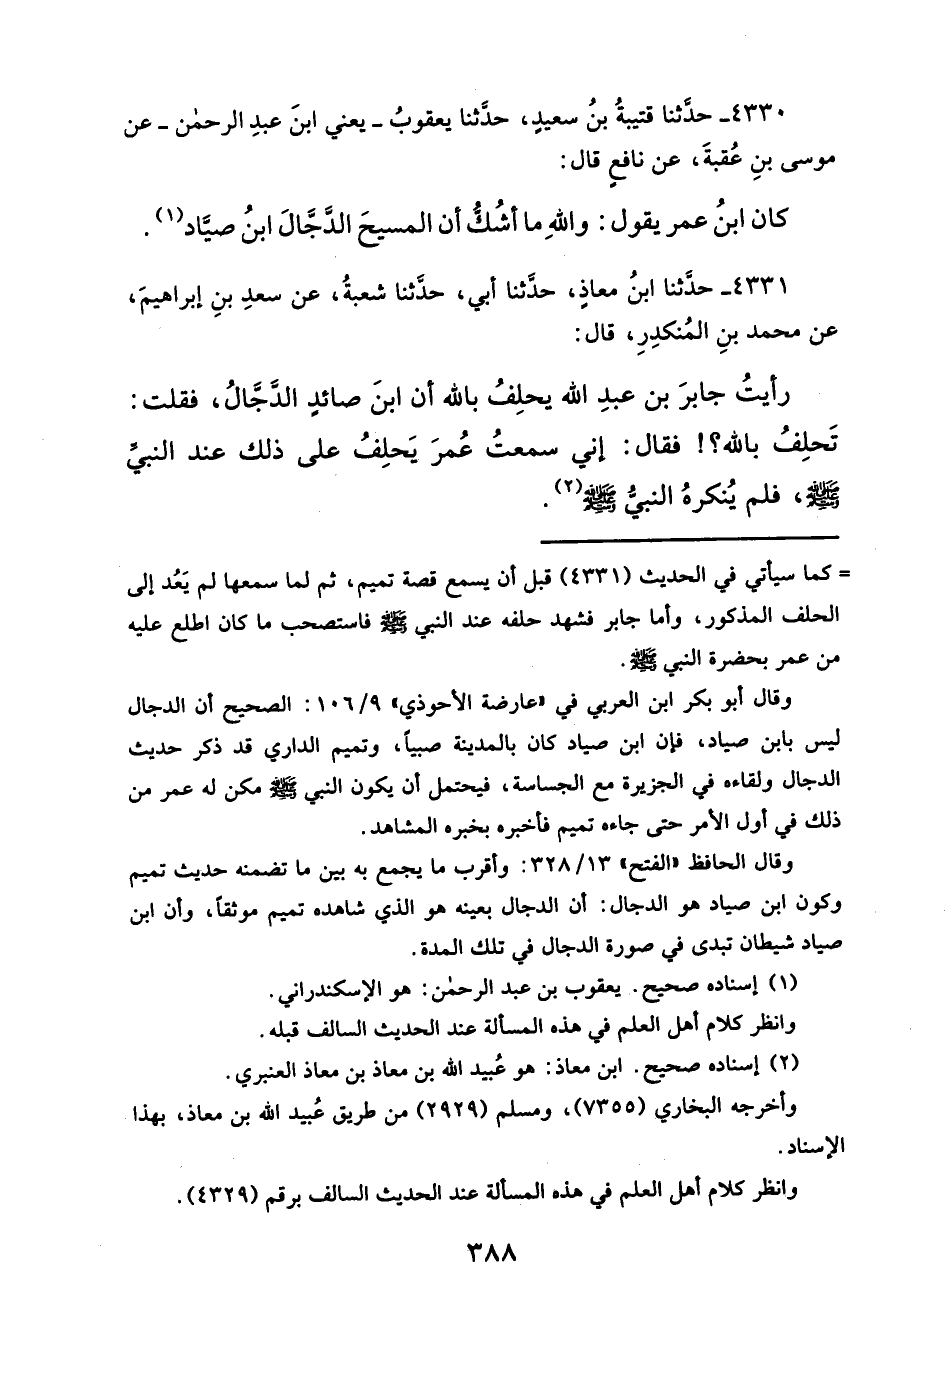 ٤٣٣٠ـ حدَّثنا قتيبةُ بنُ سعيدٍ، حدَّثنا يعقوبُ ـ يعني ابنَ عبدِ الرحمٰن ـ عن
موسى بنِ عُقبةَ، عن نافعٍ قال:
كان ابنُ عمر يقول: واللهِ ما أشُكُّ أن المسيحَ الدَّجَّالَ ابنُ صيَّاد(١).
٤٣٣١ـ حدَّثنا ابنُ معاذٍ، حدَّثنا أبي، حدَّثنا شعبةُ، عن سعدِ بنِ إبراهيمَ،
عن محمد بنِ المُنكدِرِ، قال:
رأيتُ جابرَ بن عبدِ الله يحلِفُ بالله أن ابنَ صائدٍ الدَّجَّالُ، فقلت:
تَحلِفُ بالله؟! فقال: إني سمعتُ عُمرَ يَحلِفُ على ذلك عند النبيِّ
ﷺ، فلم يُنكرهُ النبيُّ ﷺ(٢).
= كما سيأتي في الحديث (٤٣٣١) قبل أن يسمع قصة تميم، ثم لما سمعها لم يَعُد إلى
الحلف المذكور، وأما جابر فشهد حلفه عند النبي ﷺ فاستصحب ما كان اطلع عليه
من عمر بحضرة النبي ﷺ.
وقال أبو بكر ابن العربي في «عارضة الأحوذي» ٩/ ١٠٦: الصحيح أن الدجال
ليس بابن صياد، فإن ابن صياد كان بالمدينة صبياً، وتميم الداري قد ذكر حديث
الدجال ولقاءه في الجزيرة مع الجساسة، فيحتمل أن يكون النبي ﷺ مكن له عمر من
ذلك في أول الأمر حتى جاءه تميم فأخبره بخبره المشاهد.
وقال الحافظ «الفتح» ١٣/ ٣٢٨: وأقرب ما يجمع به بين ما تضمنه حديث تميم
وكون ابن صياد هو الدجال: أن الدجال بعينه هو الذي شاهده تميم موثقاً، وأن ابن
صياد شيطان تبدى في صورة الدجال في تلك المدة.
(١) إسناده صحيح. يعقوب بن عبد الرحمٰن: هو الإسكندراني.
وانظر كلام أهل العلم في هذه المسألة عند الحديث السالف قبله.
(٢) إسناده صحيح. ابن معاذ: هو عُبيد الله بن معاذ بن معاذ العنبري.
وأخرجه البخاري (٧٣٥٥)، ومسلم (٢٩٢٩) من طريق عُبيد الله بن معاذ، بهذا
الإسناد.
وانظر كلام أهل العلم في هذه المسألة عند الحديث السالف برقم (٤٣٢٩).
٣٨٨